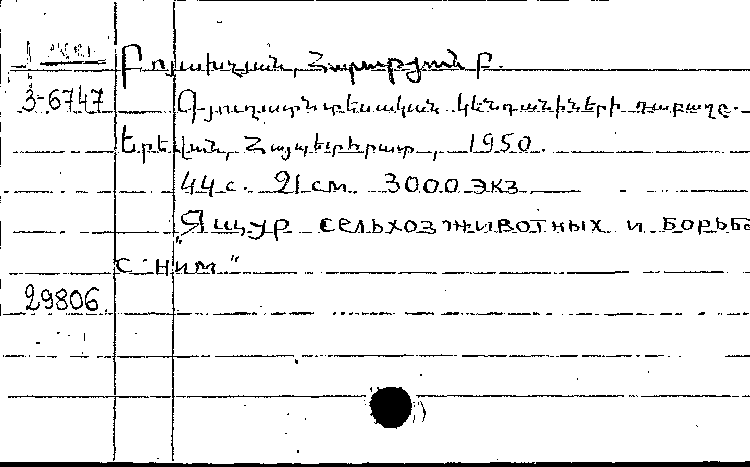 Բոյախչյան, Հարություն Բ.
3-6747 Գյուղատնտեսական կենդանիների դաբաղը.
Երևան, Հայպետհրատ, 1950.
44 с. 21 см. 3000 экз
"Ящур сельхозживотных и борьба
с ним"
29806